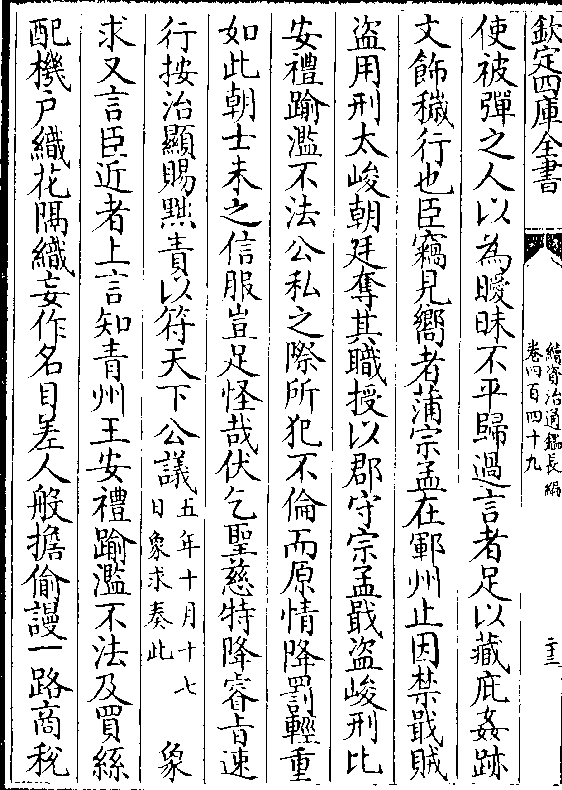 欽定四庫全書
續資治通鑑長編
卷四百四十九
使被彈之人以為曖昧不平歸過言者足以藏庇姦跡
文飾穢行也臣竊見嚮者蒲宗孟在鄆州止因禁戢賊
盜用刑太峻朝廷奪其職授以郡守宗孟戢盜峻刑比
安禮踰濫不法公私之際所犯不倫而原情降罰輕重
如此朝士未之信服豈足怪哉伏乞聖慈特降睿旨速
行按治顯賜黜責以符天下公議五年十月十七日象求奏此 象
求又言臣近者上言知青州王安禮踰濫不法及買絲
配機户織花隔織妄作名目差人般擔偷謾一路商稅